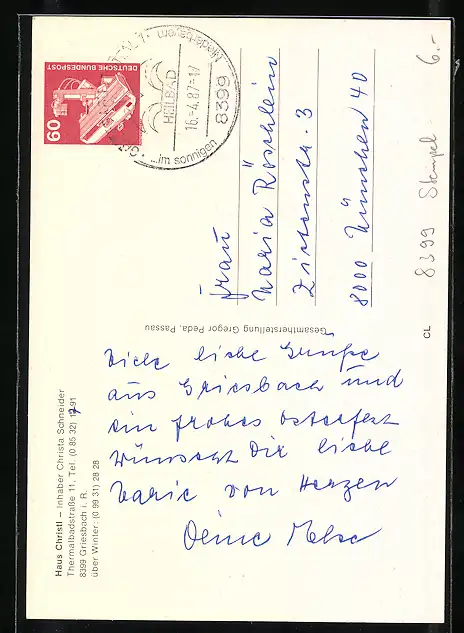 Haus Christl – Inhaber Christa Schneider
Thermalbadstraße 11, Tel. (0 85 32) 1791
8399 Griesbach i. R.
über Winter: (0 99 31) 28 28
Viele liebe Grüße
aus Griesbach und
ein frohes Osterfest
wünscht Dir liebe
Marie von Herzen
Deine
Gesamtherstellung Gregor Peda, Passau
CL
DEUTSCHE BUNDESPOST
60
8399
16.-4.87-17
HEILBAD
...im sonnigen
Niederbayern
Frau
Maria Röschlein
8000 München 40
8399 Stempel
6.-